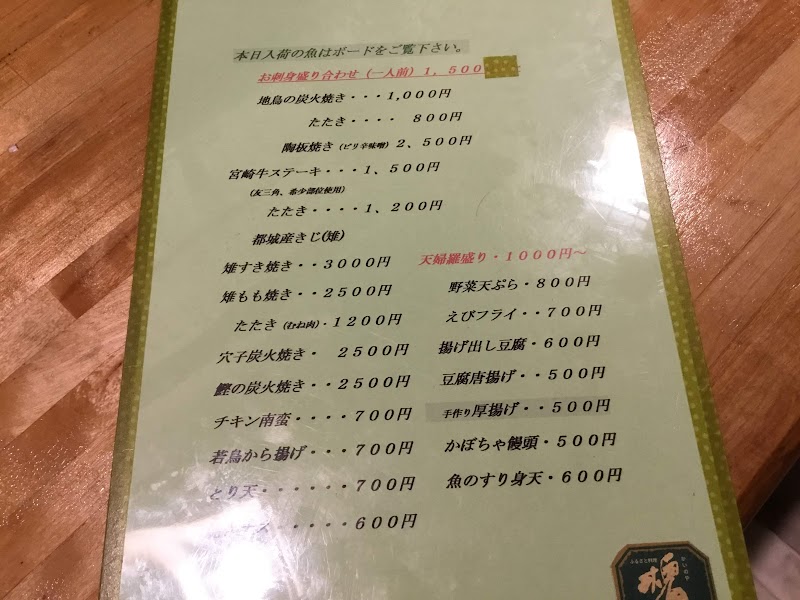 本日入荷の魚はボードをご覧下さい。
お刺身盛り合わせ（一人前）１，５００
地鳥の炭火焼き・・・１,０００円
たたき・・・・　８００円
陶板焼き（ピリ辛味噌）２、５００円
宮崎牛ステーキ・・・１、５００円
（友三角、希少部位使用）
たたき・・・・１、２００円
都城産きじ(雉)
雉すき焼き・・３０００円
雉もも焼き・・２５００円
たたき（むね肉）・１２００円
穴子炭火焼き・　２５００円
鰹の炭火焼き・・２５００円
チキン南蛮・・・・７００円
若鳥から揚げ・・・７００円
とり天・・・・・・７００円
・・・・・６００円
天婦羅盛り・１０００円～
野菜天ぷら・８００円
えびフライ・・７００円
揚げ出し豆腐・６００円
豆腐唐揚げ・・５００円
手作り厚揚げ・・５００円
かぼちゃ饅頭・５００円
魚のすり身天・６００円
ふるさと料理